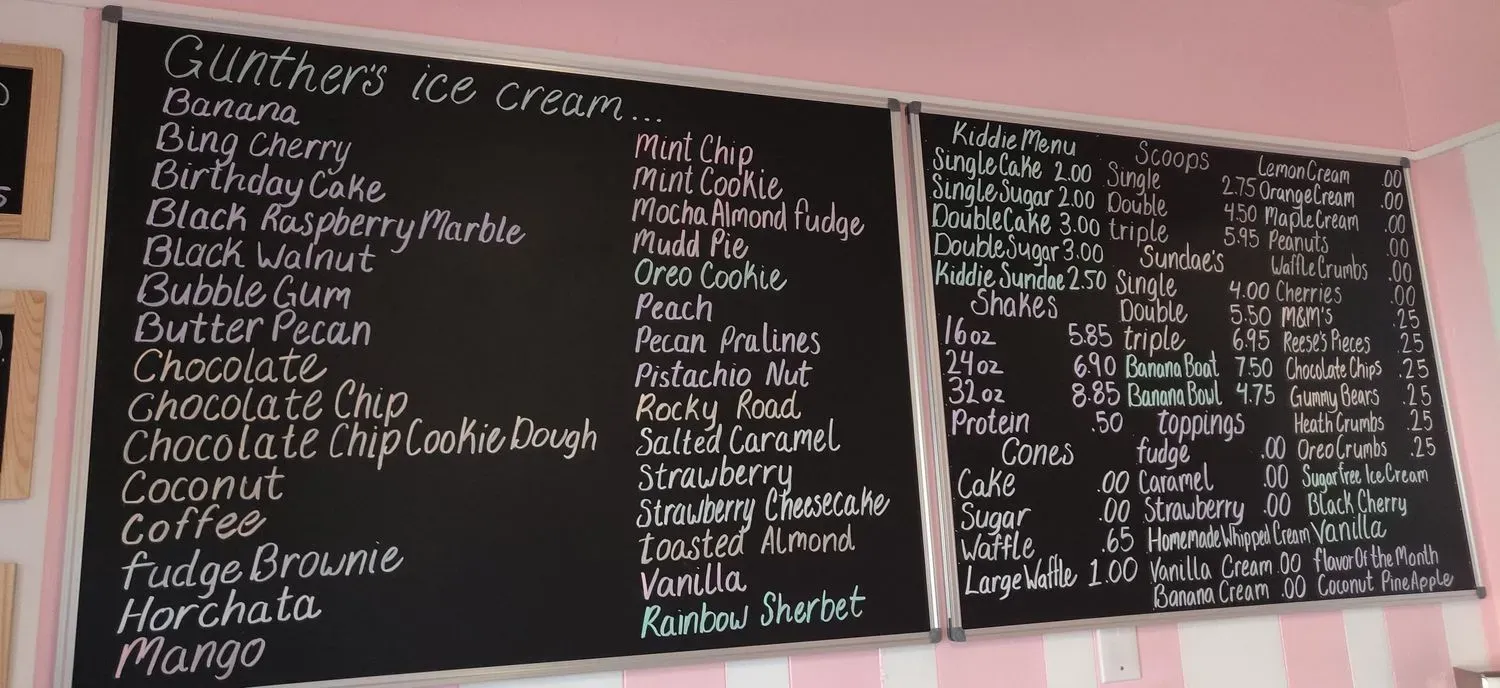 Gunther's ice cream...
Banana
Bing Cherry
Birthday Cake
Black Raspberry Marble
Black Walnut
Bubble Gum
Butter Pecan
Chocolate
Chocolate Chip
Chocolate Chip Cookie Dough
Coconut
Coffee
fudge Brownie
Horchata
Mango
Mint Chip
Mint Cookie
Mocha Almond fudge
Mudd Pie
Oreo Cookie
Peach
Pecan Pralines
Pistachio Nut
Rocky Road
Salted Caramel
Strawberry
Strawberry Cheesecake
toasted Almond
Vanilla
Rainbow Sherbet
Kiddie Menu
Single Cake 2.00
Single Sugar 2.00
Double Cake 3.00
Double Sugar 3.00
Kiddie Sundae 2.50
Shakes
16oz 5.85
24oz 6.90
32oz 8.85
Protein .50
Cones
Cake .00
Sugar .00
Waffle .65
Large Waffle 1.00
Scoops
Single 2.75
Double 4.50
triple 5.95
Sundae's
Single 4.00
Double 5.50
triple 6.95
Banana Boat 7.50
Banana Bowl 4.75
toppings
fudge .00
Caramel .00
Strawberry .00
Homemade Whipped Cream
Vanilla Cream .00
Banana Cream .00
Lemon Cream .00
Orange Cream .00
Maple Cream .00
Peanuts .00
Waffle Crumbs .00
Cherries .00
M&M's .25
Reese's Pieces .25
Chocolate Chips .25
Gummy Bears .25
Heath Crumbs .25
Oreo Crumbs .25
Sugar free Ice Cream
Black Cherry
Vanilla
flavor Of the Month
Coconut PineApple